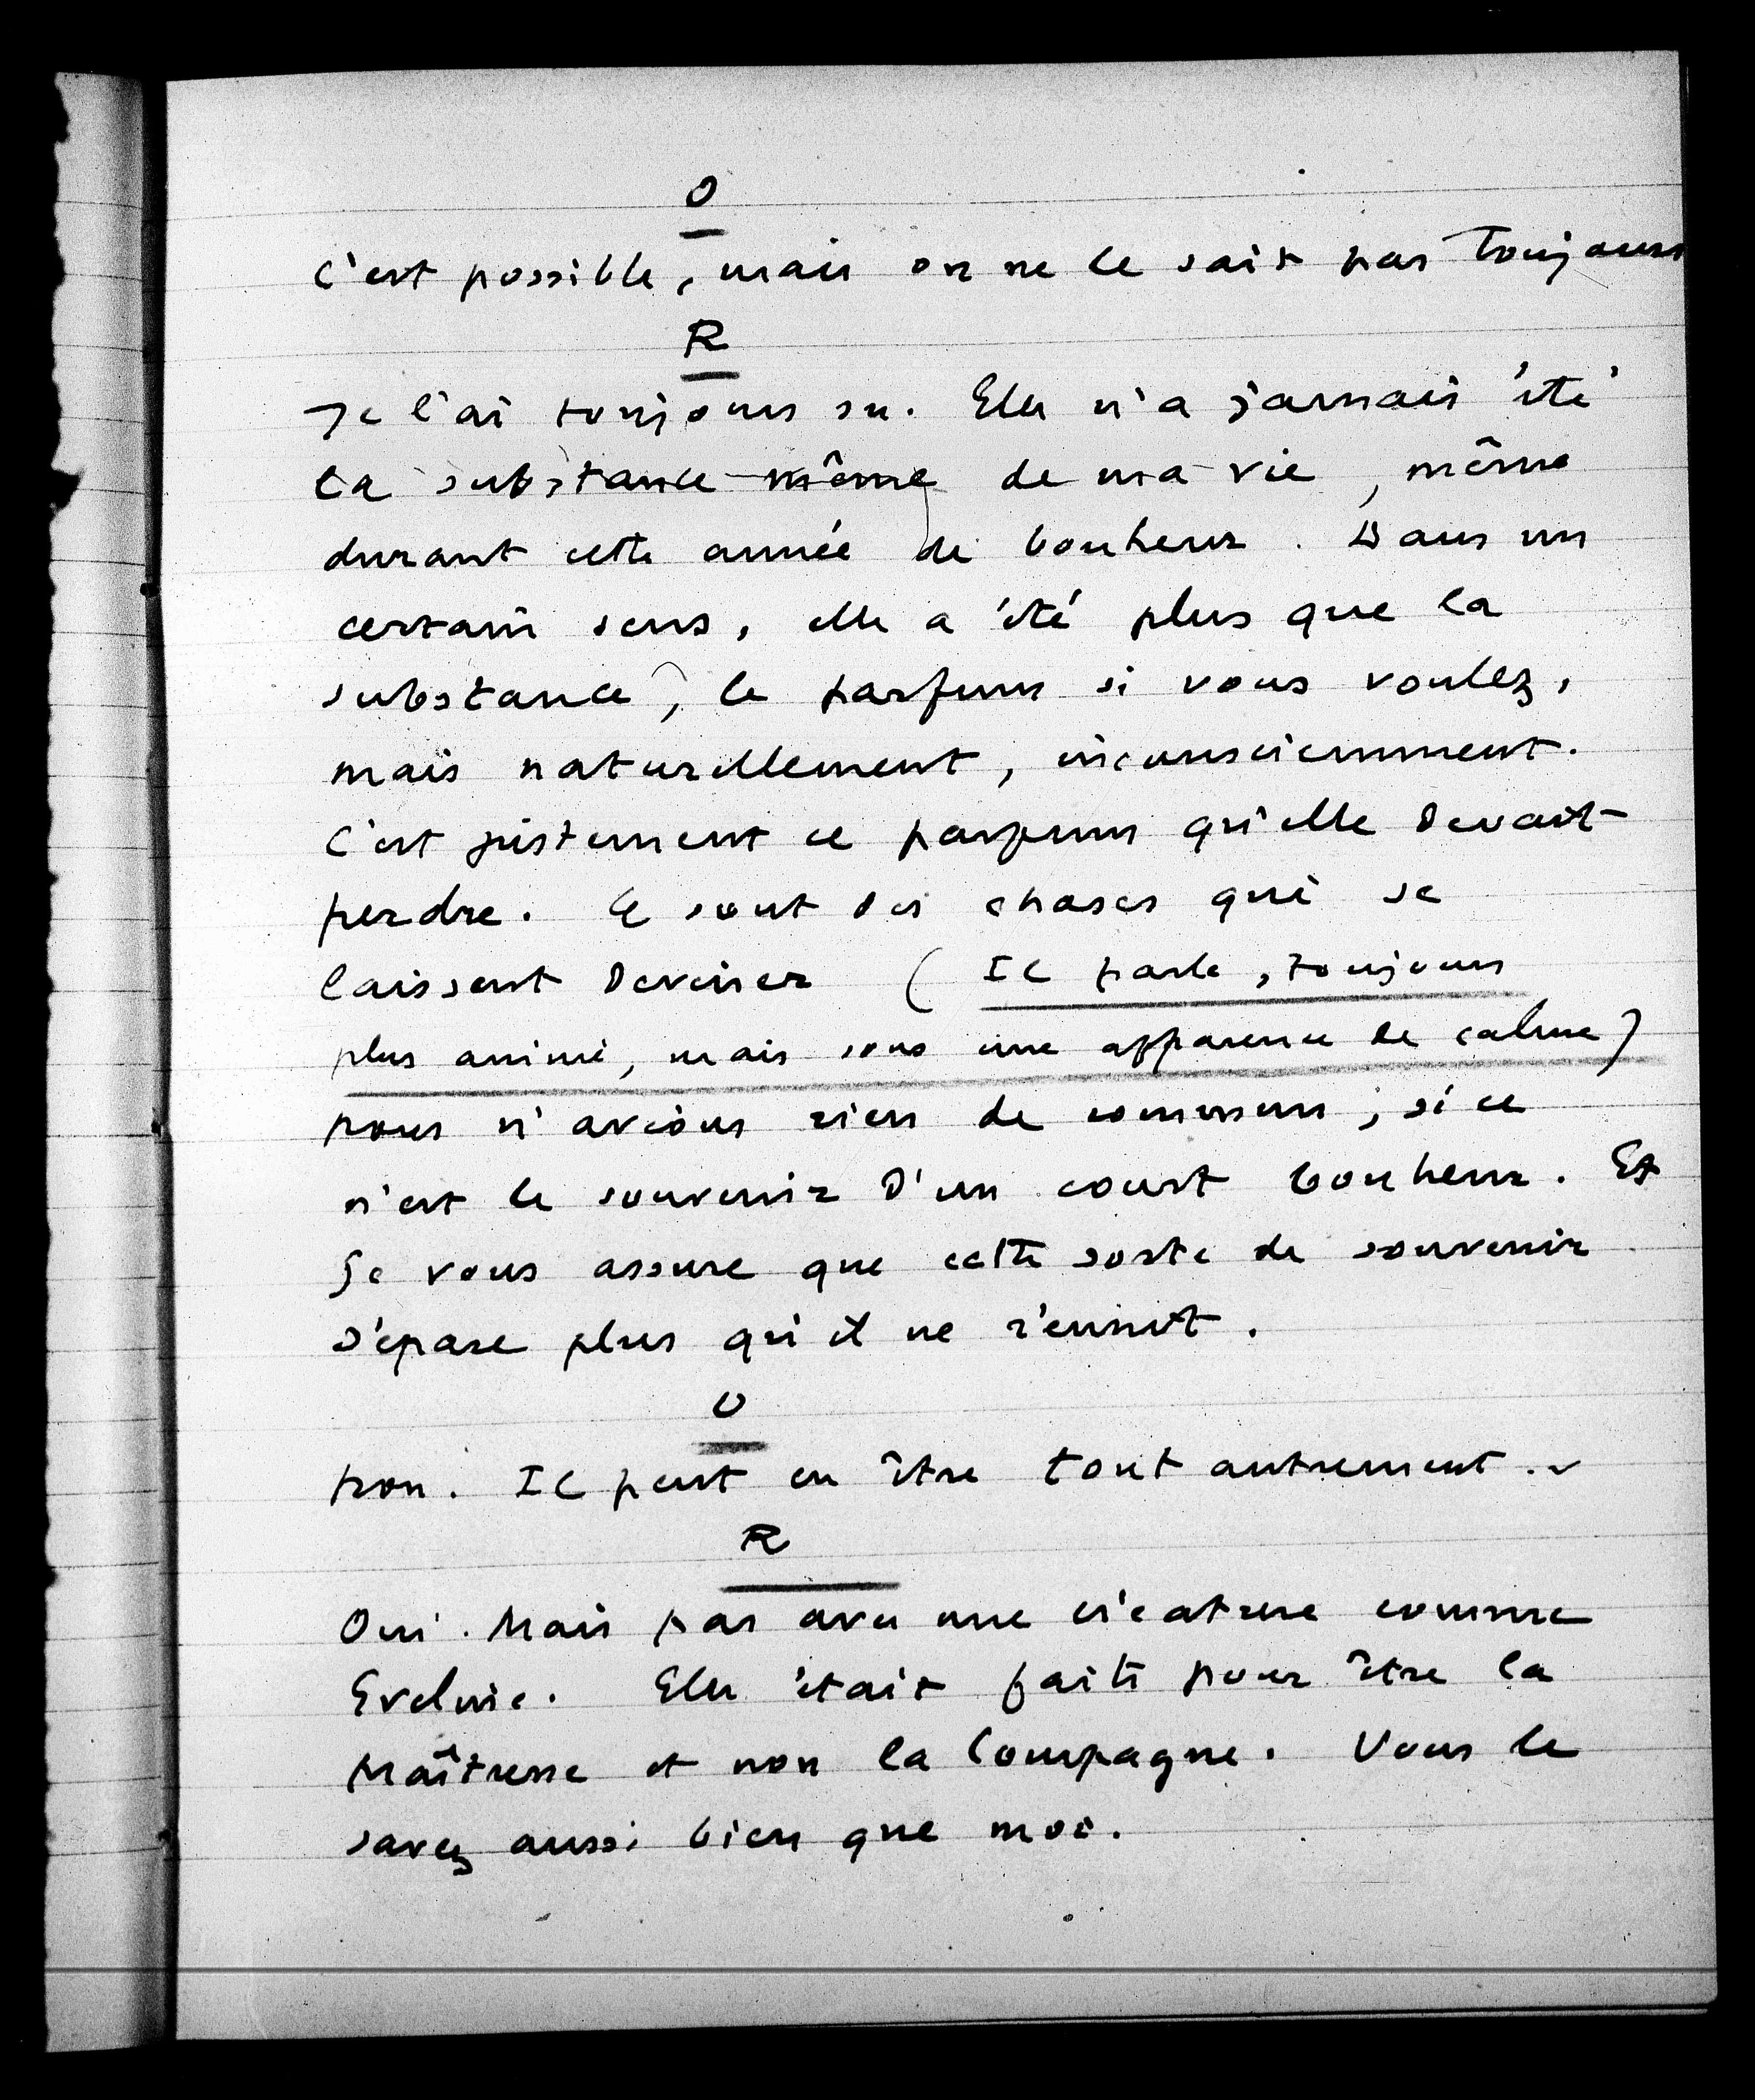 O
C'est possible, mais on ne le sait pas toujours
R
Je l'ai toujours su. Elle n'a jamais été
la substance même de ma vie, même
durant cette année de bonheur. Dans un
certain sens, elle a été plus que la
substance, le parfum si vous voulez,
mais naturellement, inconsciemment.
C'est justement ce parfum qu'elle devait
perdre. Ce sont des choses qui se
laissent deviner (Il parle, toujours
plus animé, mais sous une apparence de calme)
nous n'avions rien de commun, si ce
n'est le souvenir d'un court bonheur. Et
je vous assure que cette sorte de souvenir
sépare plus qu'il ne réunit.
O
non. Il peut en être tout autrement.
R
Oui. Mais pas avec une créature comme
Eveline. Elle était faite pour être la
Maîtresse et non la Compagne. Vous le
savez aussi bien que moi.